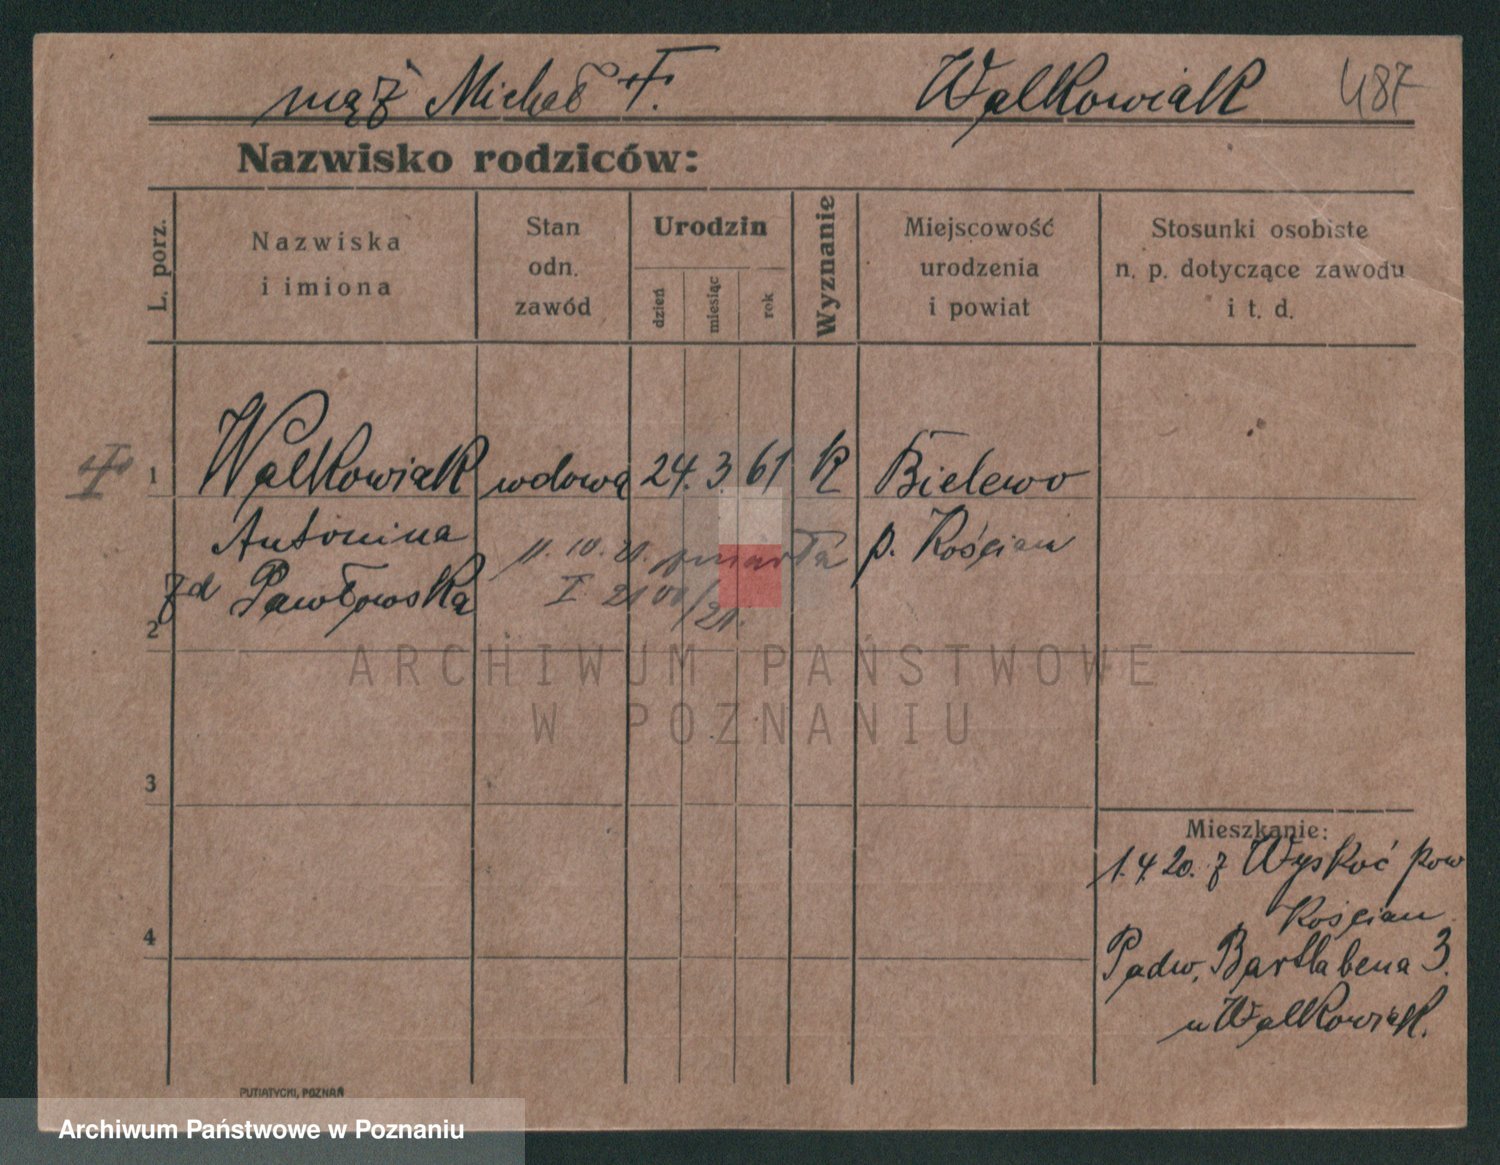 mąż Michał †. Walkowiak 487
Nazwisko rodziców:
L. porz.
Nazwiska
i imiona
Stan
odn.
zawód
Urodzin
dzień
miesiąc
rok
Wyznanie
Miejscowość
urodzenia
i powiat
Stosunki osobiste
n. p. dotyczące zawodu
i t. d.
† 1 Walkowiak wdowa 24. 3 61 K Bielewo
Antonina p. Kościan
11. 10. 21. zmarła
zd Pawłowska
I 2100/21.
2
ARCHIWUM PAŃSTWOWE
W POZNANIU
3
Mieszkanie:
1.4.20. z Wyskoć pow
Kościan.
4
Padw. Bartlabena 3.
u Walkowiak.
PUTIATYCKI, POZNAŃ
Archiwum Państwowe w Poznaniu